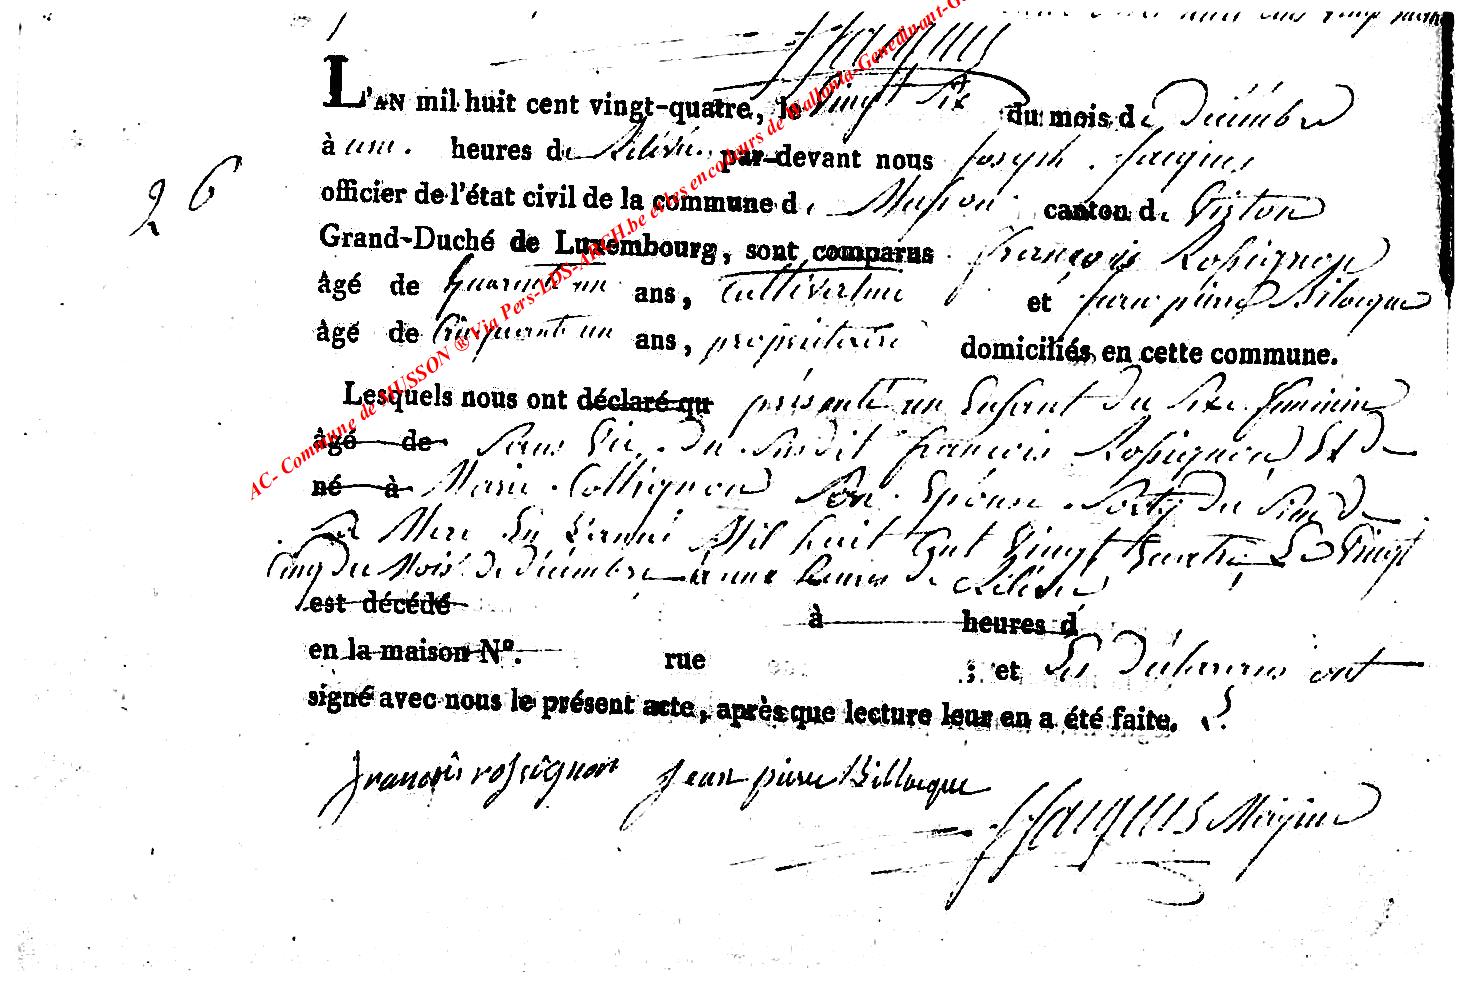 Jacques
L'AN mil huit cent vingt-quatre, le Vingt Six du mois de Décembre
à une heures de Relevée par-devant nous Joseph Jacques
officier de l'état civil de la commune de Musson canton de Virton
Grand-Duché de Luxembourg, sont comparus François Rossignon
âgé de Quarante un ans, Cultivateur et Jean pierre Bilocque
âgé de Cinquante un ans, propriétaire domiciliés en cette commune.
Lesquels nous ont déclaré qu présenté un Enfant du Sexe féminin
âgé de Sans Vie du Susdit françois Rossignon Et de
né à Marie Collignon Son Epouse Sorty du Sein de
Sa Mere En L'année Mil huit Cent Vingt Quatre Le Vingt
Cinq du Mois de décembre à une heures de Relevée
est décédé à heures d
en la maison N°. rue ; et Les Déclarans ont
signé avec nous le présent acte, après que lecture leur en a été faite.
françois rossignon Jean pierre Billocque
Jacques Mayeur
26
AC- Commune de MUSSON ® Via Pers-LDS-ARCH.be et les encodeurs de Wallonia-Genedinant-G